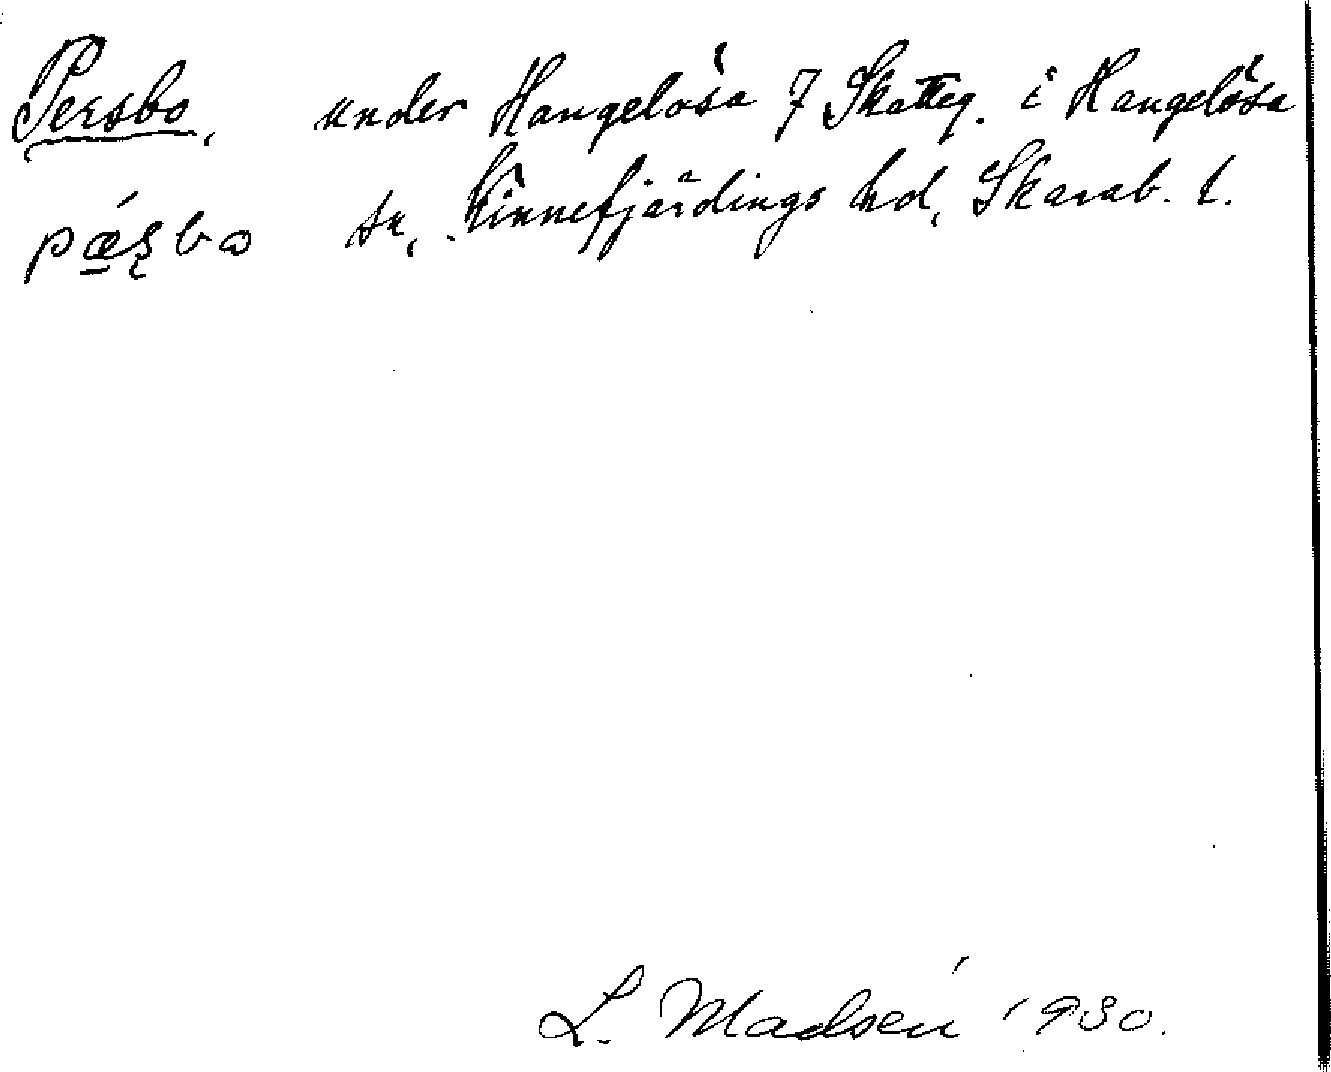 Persbo, under Hangelösa 7 Skatteg. i Hangelösa
pǽʂbo sn, Kinnefjärdings hd, Skarab. l.
L. Madsén 1930.